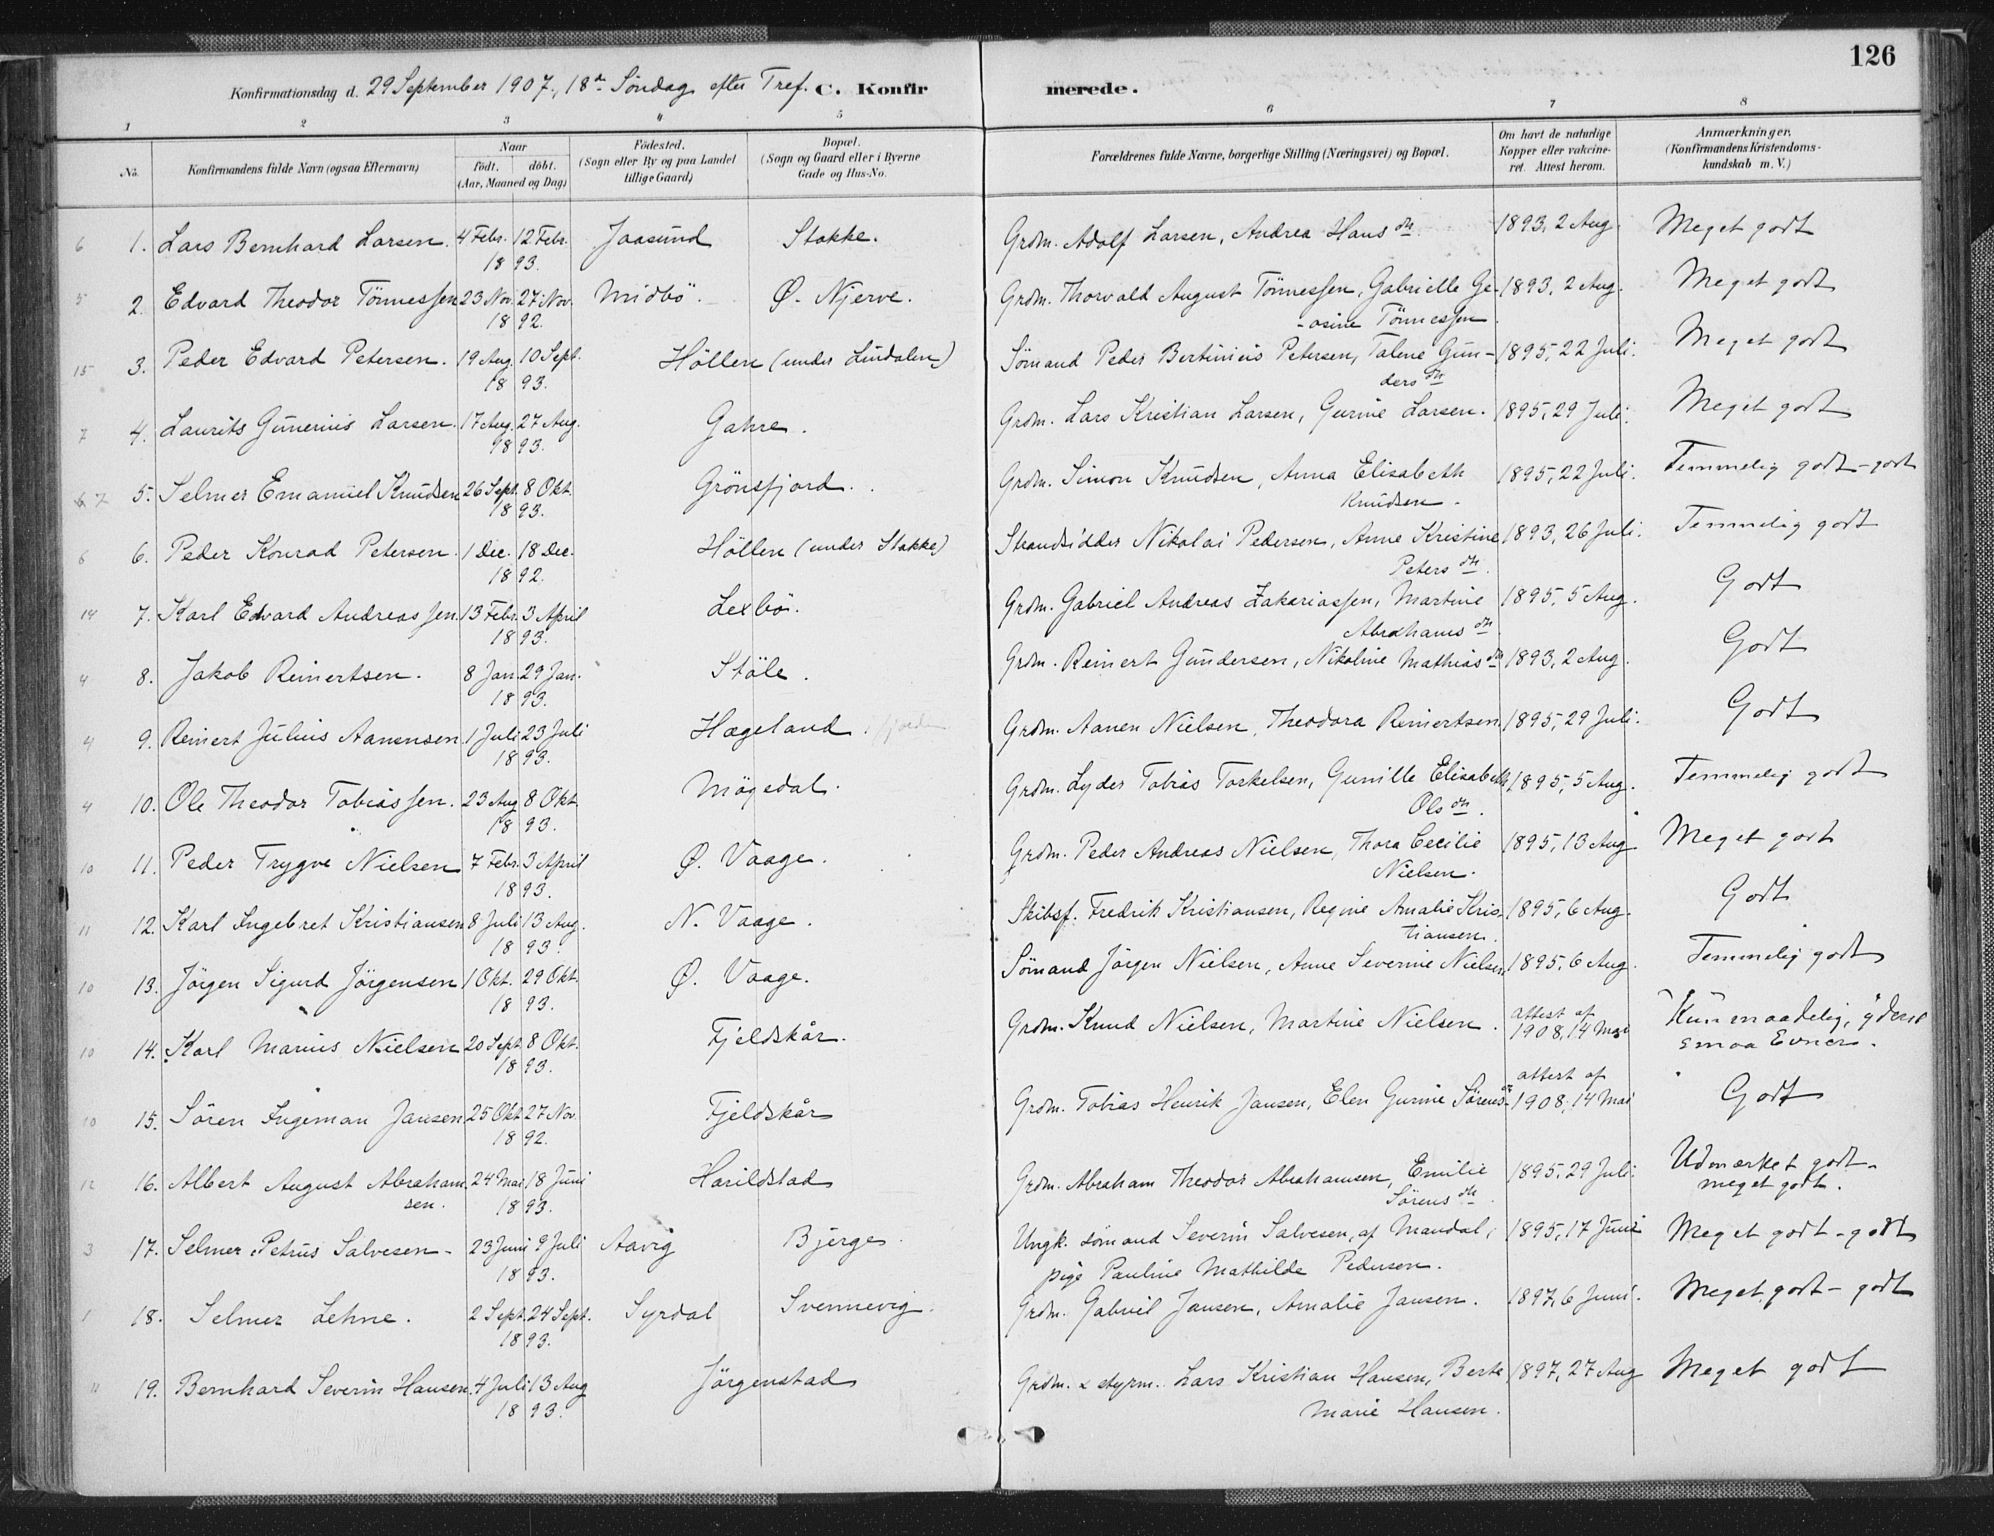 126
Konfirmationsdag d. 29 September 1907, 18de Søndag efter Tref. C. Konfirmerede.
1 2 3 4 5 6 7 8
No. Konfirmandens fulde Navn (ogsaa Efternavn) Naar födt. döbt. (Aar, Maaned og Dag) Födested. (Sogn eller By og paa Landet tillige Gaard) Bopæl. (Sogn og Gaard eller i Byerne Gade og Hus-No. Forældrenes fulde Navne, borgerlige Stilling (Næringsvei) og Bopæl. Om havt de naturlige Kopper eller vakcineret. Attest herom. Anmærkninger. (Konfirmandens Kristendomskundskab m. V.)
6 1. Lars Bernhard Larsen. 4 Febr. 12 Febr. Jaasund Stokke. Grdm. Adolf Larsen, Andrea Hansdtr. 1893, 2 Aug. Meget godt
1893.
5 2. Edvard Theodor Tönnessen 23 Nov. 27 Nov. Midbö. Ø. Njerve. Grdm. Thorvald August Tönnessen, Gabrielle Ge- 1893, 2 Aug. Meget godt
1892. -osine Tönnessen
15 3. Peder Edvard Petersen. 19 Aug. 10 Sept. Höllen (under Lindalen) Sømand Peder Bertinius Petersen, Talene Gun- 1895, 22 Juli. Meget godt
1893. dersdtr
7 4. Laurits Gunerius Larsen. 17 Aug. 27 Aug. Gahre. Grdm. Lars Kristian Larsen, Gurine Larsen. 1895, 29 Juli. Meget godt
1893.
7 5. Selmer Emanuel Knudsen 26 Sept. 8 Okt. Grönsfjord. Grdm. Simon Knudsen, Anna Elisabeth 1895, 22 Juli. Temmelig godt - godt
1893. Knudsen.
6 6. Peder Konrad Petersen. 1 Dec. 18 Dec. Höllen (under Stokke) Strandsidder Nikolai Pedersen, Anne Kristine 1893, 26 Juli. Temmelig godt
1892. Petersdtr.
14 7. Karl Edvard Andreassen. 13 Febr. 3 April Lexbö. Grdm. Gabriel Andreas Zakariassen, Martine 1895, 5 Aug. Godt
1893. Abrahamsdtr
4 8. Jakob Reinertsen. 8 Jan. 29 Jan. Stöle. Grdm. Reinert Gundersen, Nikoline Mathiasdtr 1893, 2 Aug. Godt
1893.
4 9. Reinert Julius Aanensen 1 Juli 23 Juli Hægeland. Grdm. Aanen Nielsen, Theodora Reinertsen. 1895, 29 Juli. Godt
1893.
4 10. Ole Theodor Tobiassen. 23 Aug 8 Okt Mögedal. Grdm. Lyder Tobias Torkelsen, Gunille Elisabeth 1895, 5 Aug. Temmelig godt
1893. Olsdtr.
10 11. Peder Trygve Nielsen 7 Febr. 3 April Ø. Vaage. Grdm. Peder Andreas Nielsen, Thora Cecilie 1895, 13 Aug Meget godt
1893. Nielsen.
11 12. Karl Ingebret Kristiansen 8 Juli 13 Aug. N. Vaage. Skibsf. Fredrik Kristiansen, Regine Amalie Kris- 1895, 6 Aug. Godt
1893. tiansen.
10 13. Jörgen Sigurd Jörgensen 1 Okt. 29 Okt. Ø. Vaage. Sømand Jörgen Nielsen, Anne Severine Nielsen 1895, 6 Aug. Temmelig godt
1893.
10 14. Karl Marius Nielsen 20 Sept. 8 Okt. Fjeldskår. Grdm. Knud Nielsen, Martine Nielsen. attest af 1908, 14 Mai Kun maadelig, yderst
1893. smaa Evner.
10 15. Sören Ingeman Jansen 25 Okt 27 Nov. Fjeldskår Grdm. Tobias Henrik Jansen, Elen Gurine Sørensdtr attest af 1908, 14 Mai Godt
1892.
12 16. Albert August Abraham- 24 Mai 18 Juni Harildstad Grdm. Abraham Theodor Abrahamsen, Emilie 1895, 29 Juli. Udmærket godt -
sen. 1893. Sörensdtr. meget godt.
3 17. Selmer Petrus Salvesen - 23 Juni 9 Juli Aavig Bjerge. Ungk. sömand Severin Salvesen, af Mandal, 1895, 17 Juni Meget godt - godt
1893. pige Pauline Mathilde Pedersen.
1 18. Selmer Lehne. 2 Sept. 24 Sept. Syrdal Svennevig. Grdm. Gabriel Jansen, Amalie Jansen. 1897, 6 Juni. Meget godt - godt
1893.
11 19. Bernhard Severin Hansen. 4 Juli 13 Aug Jörgenstad Grdm. & styrm. Lars Kristian Hansen, Berte 1897, 27 Aug Meget godt
1893. Marie Hansen.